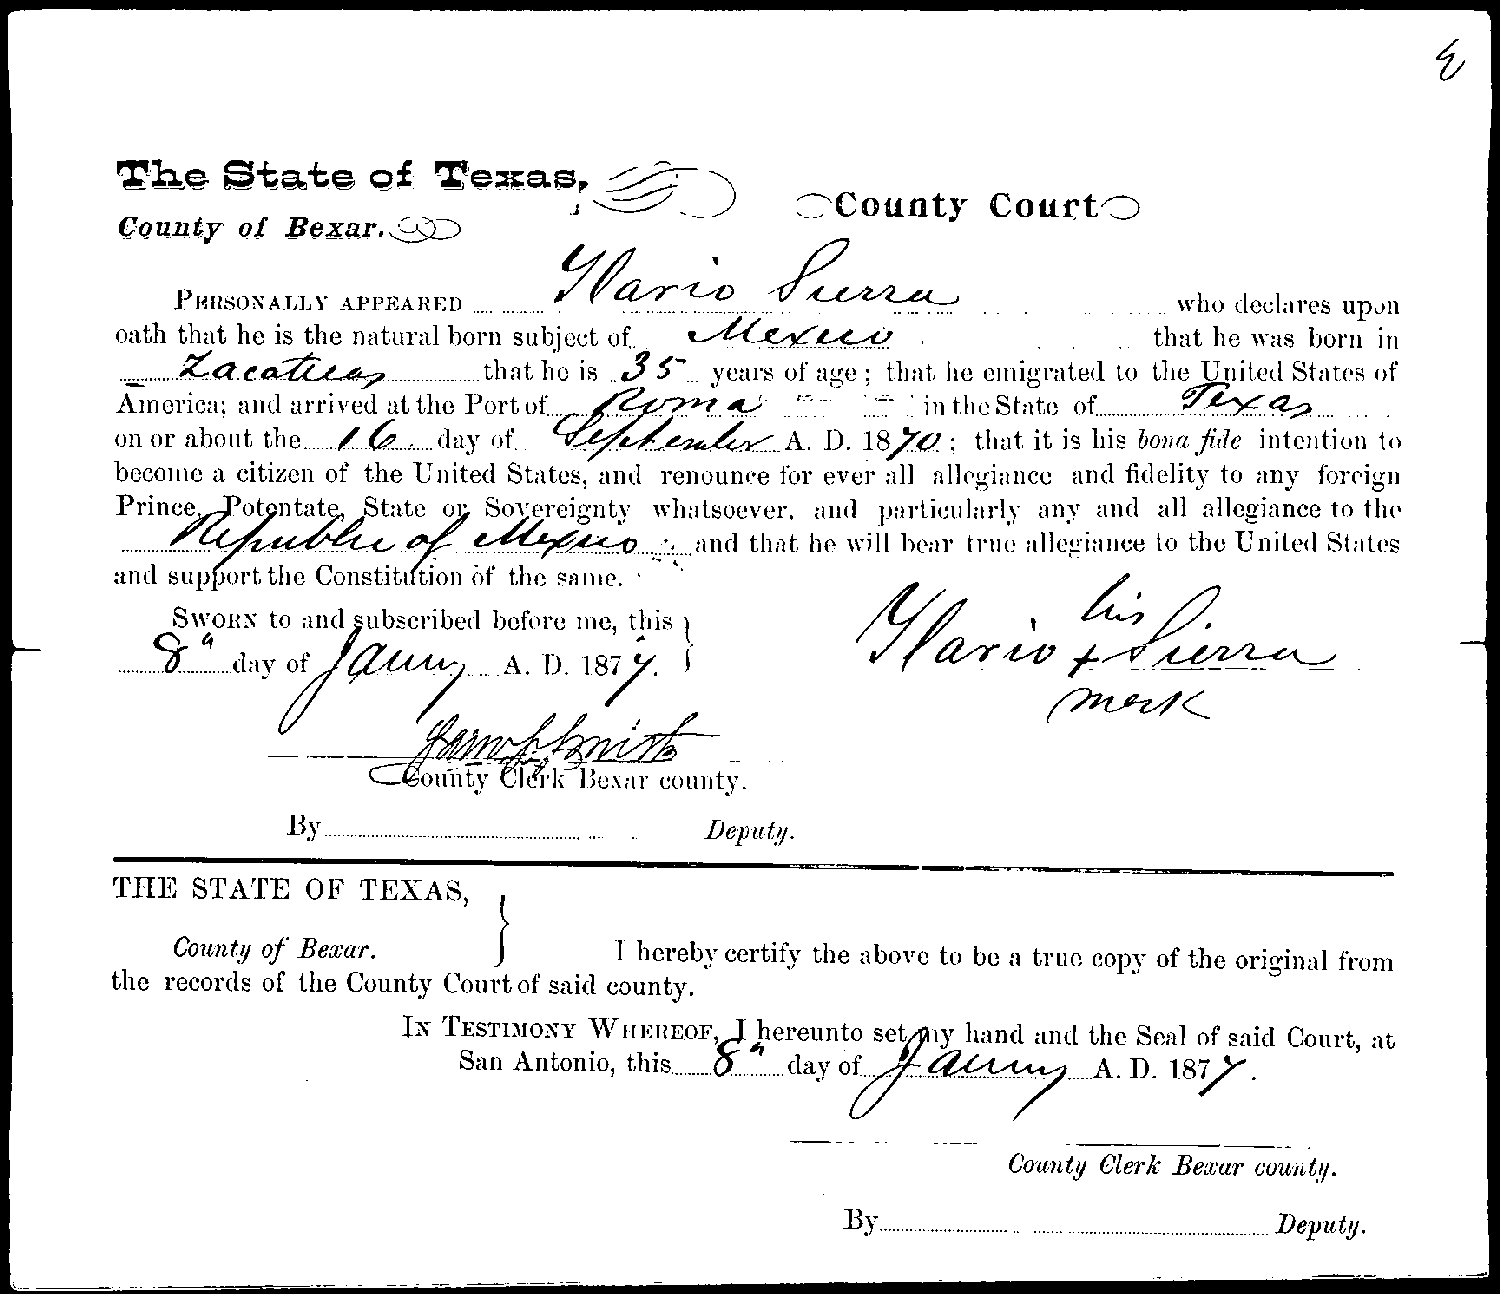 The State of Texas,
County Court
County of Bexar.
PERSONALLY APPEARED Ilario Sierra who declares upon
oath that he is the natural born subject of Mexico that he was born in
Zacatecas that he is 35 years of age; that he emigrated to the United States of
America; and arrived at the Port of Roma in the State of Texas
on or about the 16 day of September A. D. 1870; that it is his bona fide intention to
become a citizen of the United States, and renounce for ever all allegiance and fidelity to any foreign
Prince, Potentate, State or Sovereignty whatsoever, and particularly any and all allegiance to the
Republic of Mexico and that he will bear true allegiance to the United States
and support the Constitution of the same.
SWORN to and subscribed before me, this
8" day of Janury A. D. 1877.
his
Ilario x Sierra
merk
Smith
County Clerk Bexar county.
By Deputy.
THE STATE OF TEXAS,
County of Bexar.
I hereby certify the above to be a true copy of the original from
the records of the County Court of said county.
IN TESTIMONY WHEREOF, I hereunto set my hand and the Seal of said Court, at
San Antonio, this 8" day of Janury A. D. 1877.
County Clerk Bexar county.
By Deputy.